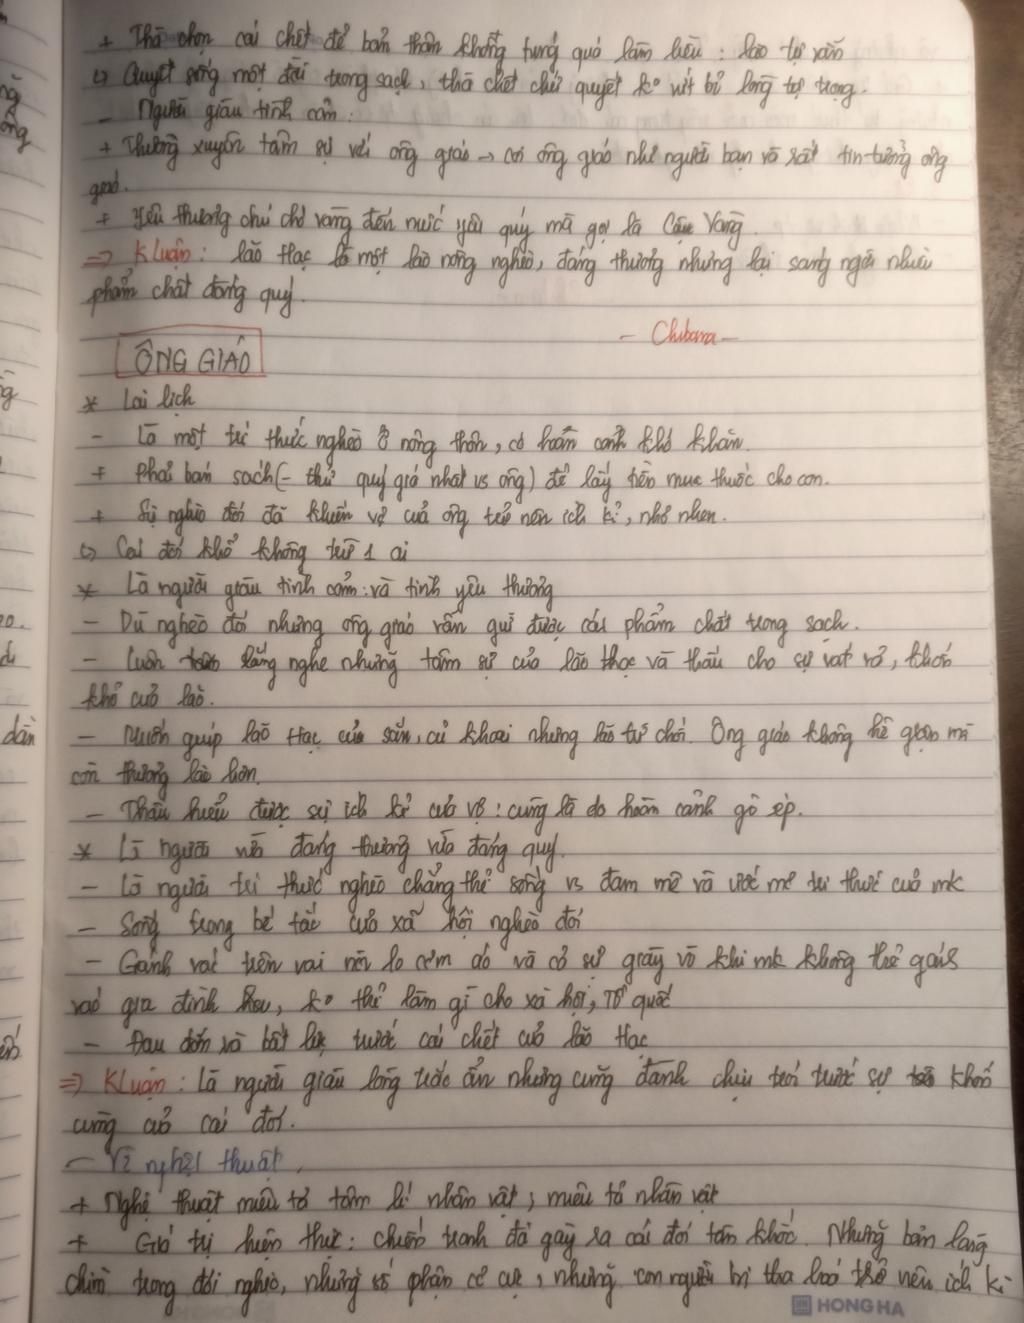 + Thà chọn cái chết để bản thân không túng quá làm liều : lão tự vẫn
↳ Quyết sống một đời trong sạch, thà chết chứ quyết ko vứt bỏ lòng tự trọng.
- Người giàu tình cảm :
+ Thường xuyên tâm sự với ông giáo → coi ông giáo như người bạn và rất tin tưởng ông
giáo.
+ Yêu thương chú chó vàng đến mức yêu quý mà gọi là Cậu Vàng.
⇒ K luận : lão Hạc là một lão nông nghèo, đáng thương nhưng lại sáng ngời nhiều
phẩm chất đáng quý.
- Chibana -
ÔNG GIÁO
* Lai lịch
- Là một trí thức nghèo ở nông thôn, có hoàn cảnh khó khăn.
+ Phải bán sách (- thứ quý giá nhất vs ông) để lấy tiền mua thuốc cho con.
+ Sự nghèo đói đã khiến vợ của ông trở nên ích kỉ, nhỏ nhen.
↳ Cái đói khổ không từ 1 ai
* Là người giàu tình cảm : và tình yêu thương
- Dù nghèo đói nhưng ông giáo vẫn giữ được cái phẩm chất trong sạch.
- Luôn lắng nghe những tâm sự của lão Hạc và thấu cho sự vất vả, khốn
khổ của lão.
- Muốn giúp lão Hạc củ sắn, củ khoai nhưng lão từ chối. Ông giáo không hề giận mà
còn thương lão hơn.
- Thấu hiểu được sự ích kỉ của vợ : cũng là do hoàn cảnh gò ép.
* Là người vừa đáng thương vừa đáng quý.
- Là người trí thức nghèo chẳng thể sống vs đam mê và ước mơ tri thức của mk
- Sống trong bế tắc của xã hội nghèo đói
- Gánh vác trên vai nỗi lo cơm áo và cả sự giày vò khi mk không thể gánh
vác gia đình, ko thể làm gì cho xã hội, Tổ quốc
- Đau đớn và bất lực trước cái chết của lão Hạc
⇒ K Luận : Là người giàu lòng trắc ẩn nhưng cũng đành chịu trói trước sự khốn
cùng của cái đói.
- Về nghệ thuật
+ Nghệ thuật miêu tả tâm lí nhân vật ; miêu tả nhân vật
+ Giá trị hiện thực : chiến tranh đã gây ra cái đói tàn khốc. Những bản làng
chìm trong đói nghèo, những số phận cơ cực, những con người bị tha hoá trở nên ích kỉ
HONG HA